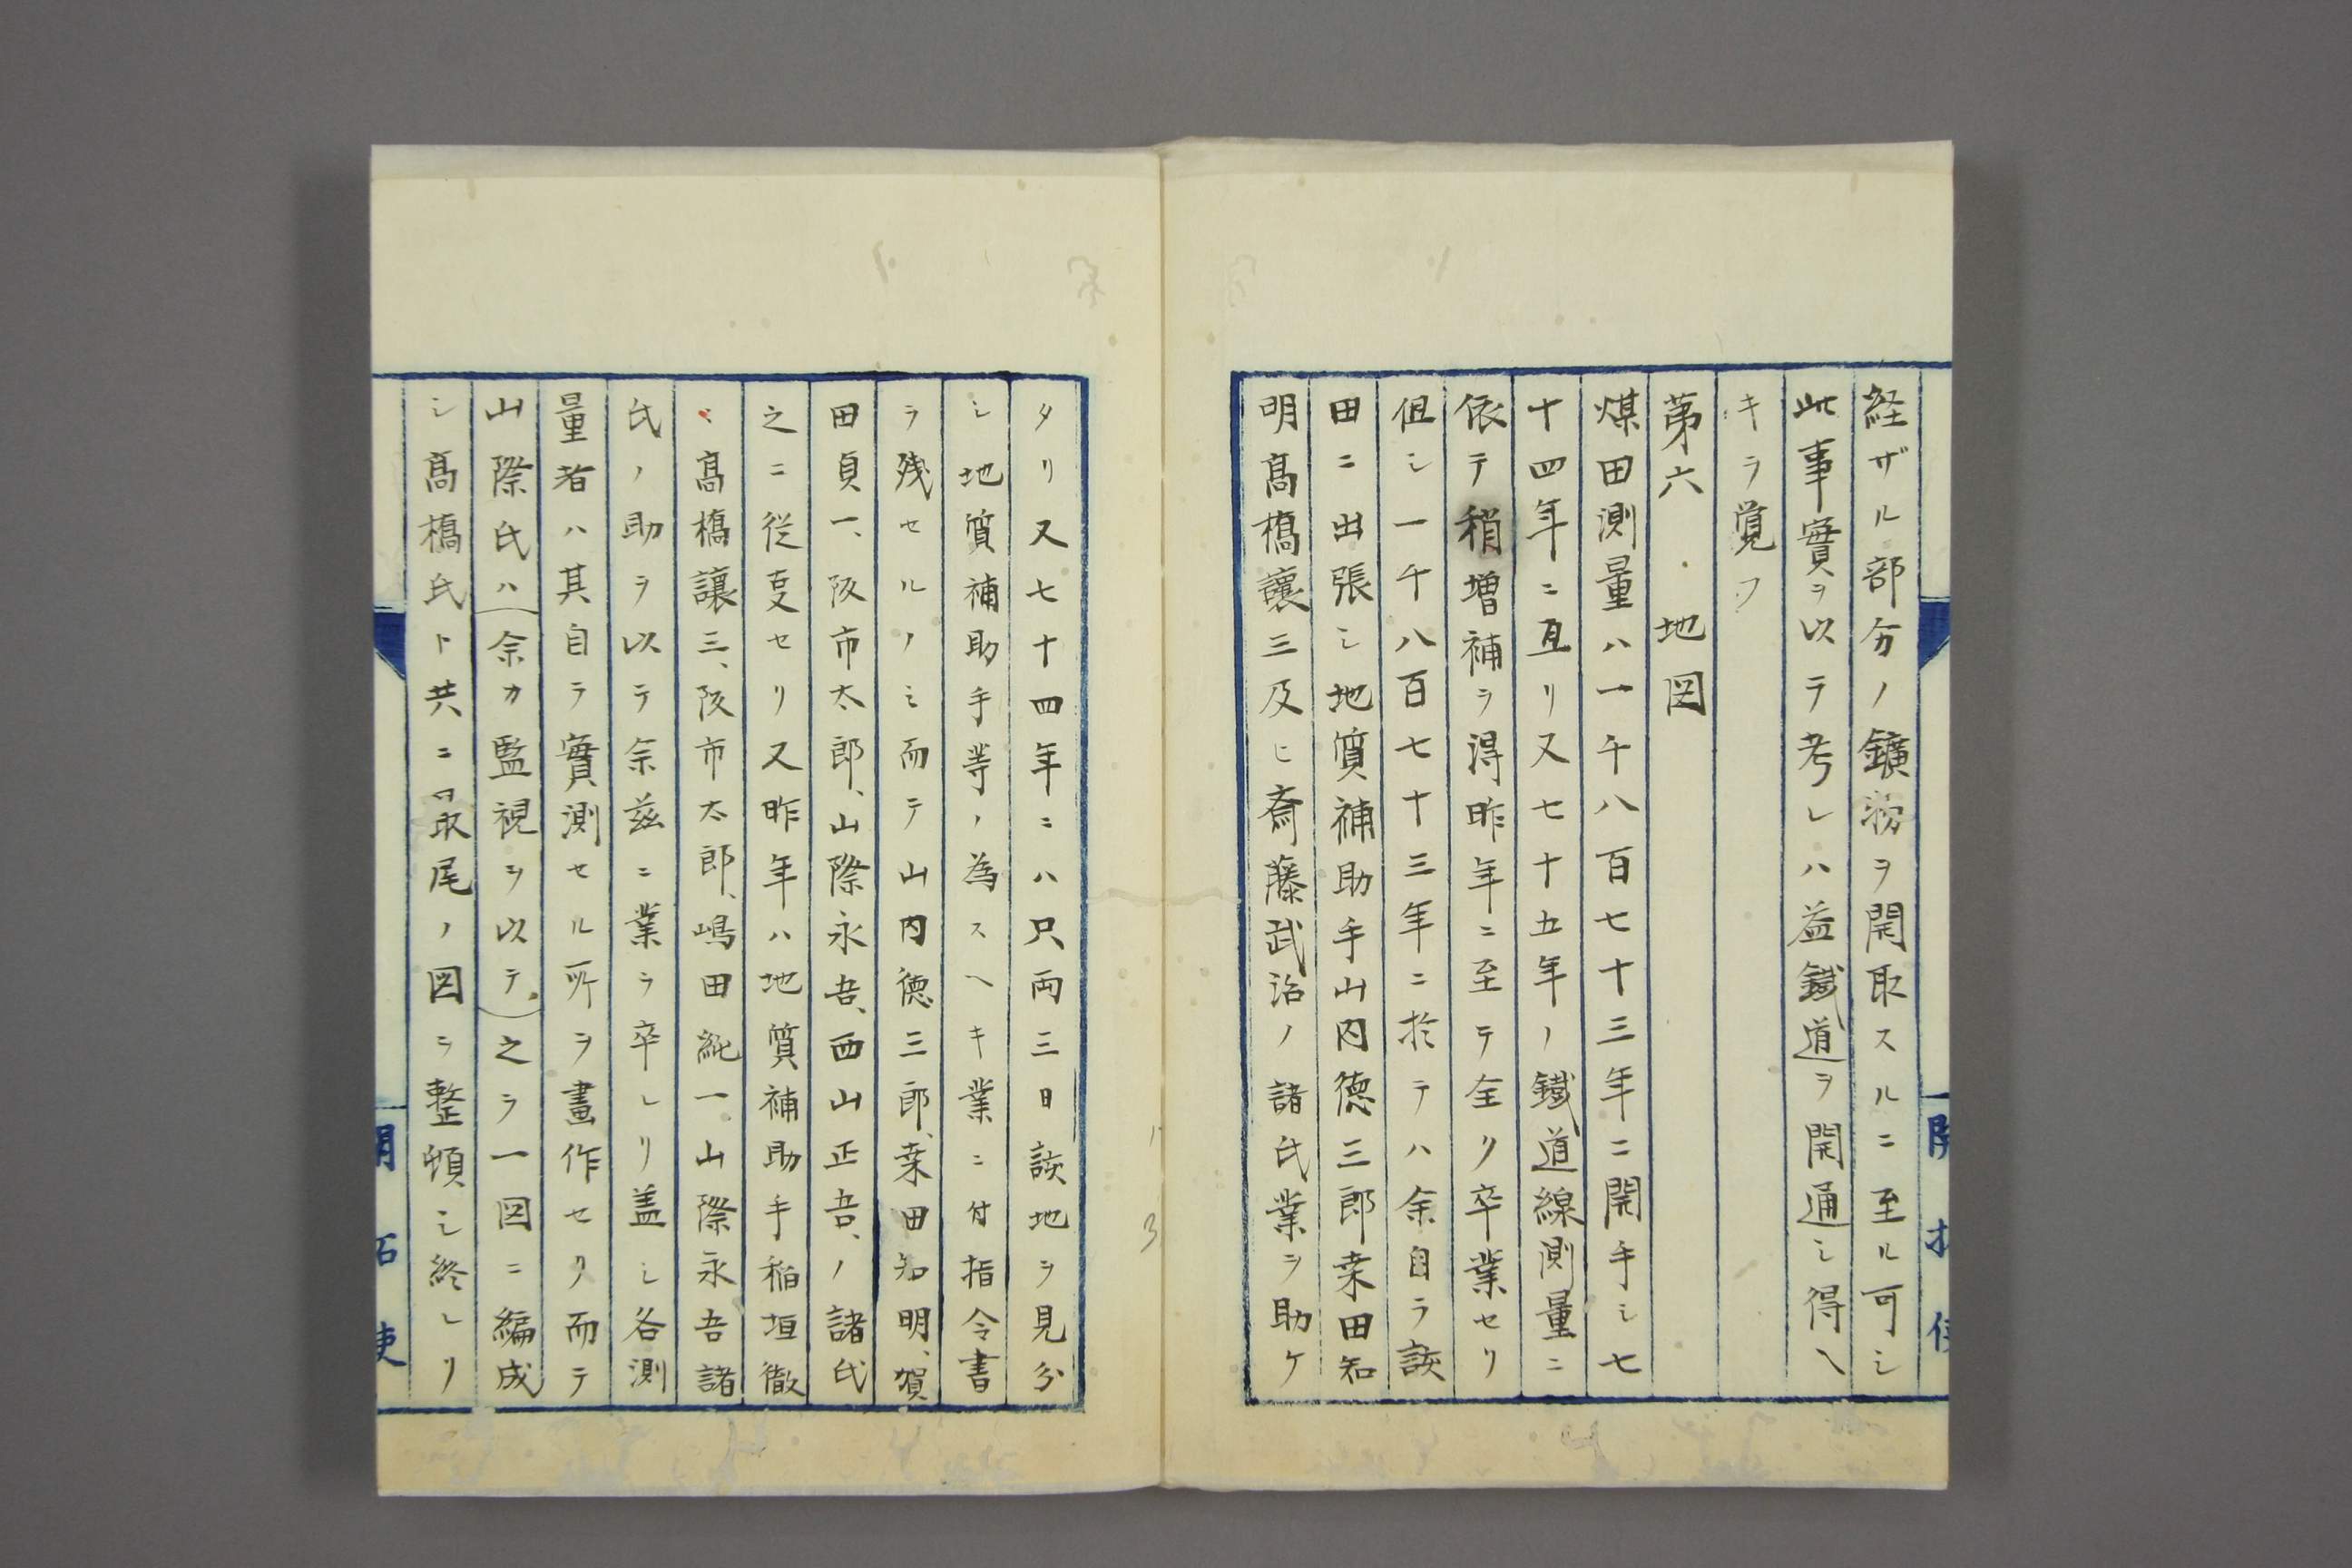 経ザル部分ノ鑛務ヲ開取スルニ至ル可シ
此事實ヲ以テ考レハ益鐵道ヲ開通シ得ヘ
キヲ覚フ
第六 地図
煤田測量ハ一千八百七十三年ニ開手シ七
十四年ニ亙リ又七十五年ノ鐵道線測量ニ
依テ稍増補ヲ得昨年ニ至テ全ク卒業セリ
但シ一千八百七十三年ニ於テハ余自ラ該
田ニ出張シ地質補助手山内徳三郎桒田知
明髙橋讓三及ヒ斎藤武治ノ諸氏業ヲ助ケ
タリ又七十四年ニハ只両三日該地ヲ見分
シ地質補助手等ノ為スヘキ業ニ付指令書
ヲ残セルノミ而テ山内徳三郎、桒田知明、賀
田貞一、阪市太郎、山際永吾、西山正吾、ノ諸氏
之ニ從叓セリ又昨年ハ地質補助手稲垣徹
ミ髙橋讓三、阪市太郎、嶋田純一、山際永吾諸
氏ノ助ヲ以テ余茲ニ業ヲ卒レリ盖シ各測
量者ハ其自ラ實測セル所ヲ畫作セリ而テ
山際氏ハ(余カ監視ヲ以テ)之ヲ一図ニ編成
シ髙橋氏ト共ニ最尾ノ図ヲ整頓シ終レリ
開拓使